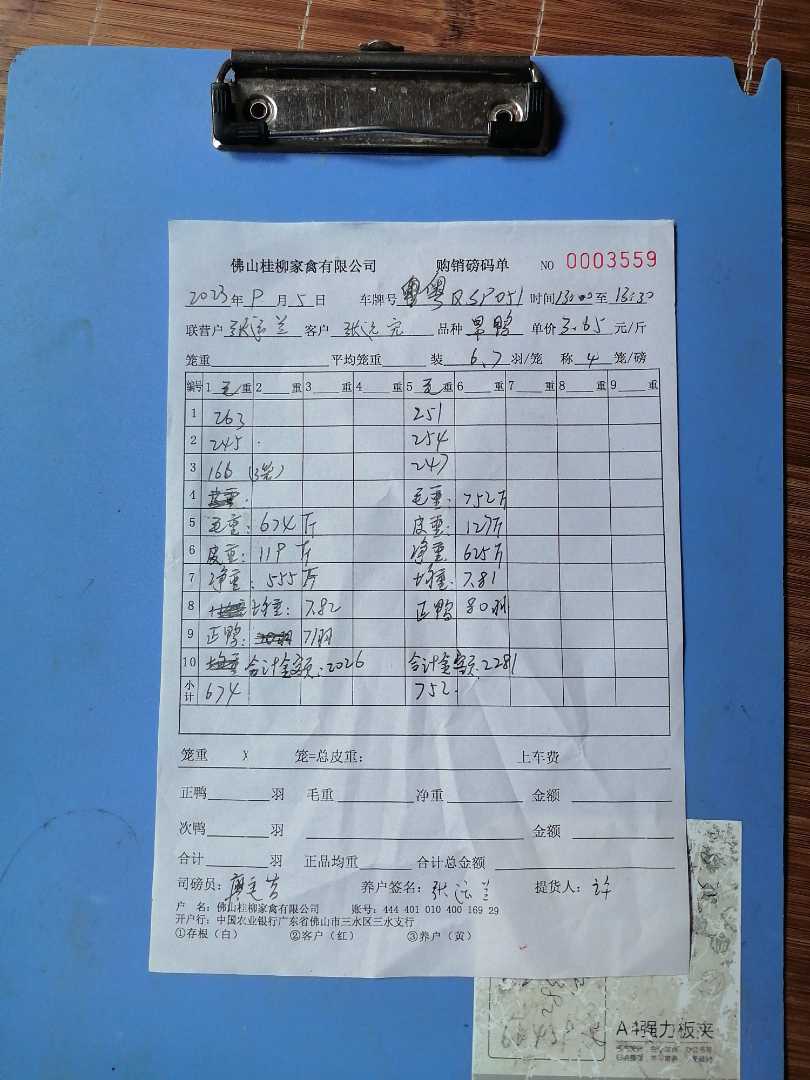 佛山桂柳家禽有限公司 购销磅码单 NO 0003559
2023年9月5日 车牌号 粤QSP051 时间13:00至13:30
联营户 客户 品种 单价3.65元/斤
笼重 平均笼重 装6.7羽/笼 称4笼/磅
编号 1毛重 2 重 3 重 4 重 5毛重 6 重 7 重 8 重 9 重
1 263 251
2 245 254
3 166 (3笼) 247
4 毛重:752斤
5 毛重:674斤 皮重:127斤
6 皮重:119斤 净重:625斤
7 净重:555斤 均重:7.81
8 均重:7.82 正鸭 80羽
9 正鸭: 71羽
10 合计金额:2026 合计金额:2281
小计 674 752.
笼重 X 笼=总皮重: 上车费
正鸭 羽 毛重 净重 金额
次鸭 羽 金额
合计 羽 正品均重 合计总金额
司磅员: 养户签名: 提货人:
户 名:佛山桂柳家禽有限公司 账号:444 401 010 400 169 29
开户行:中国农业银行广东省佛山市三水区三水支行
①存根(白) ②客户(红) ③养户(黄)
A4强力板夹